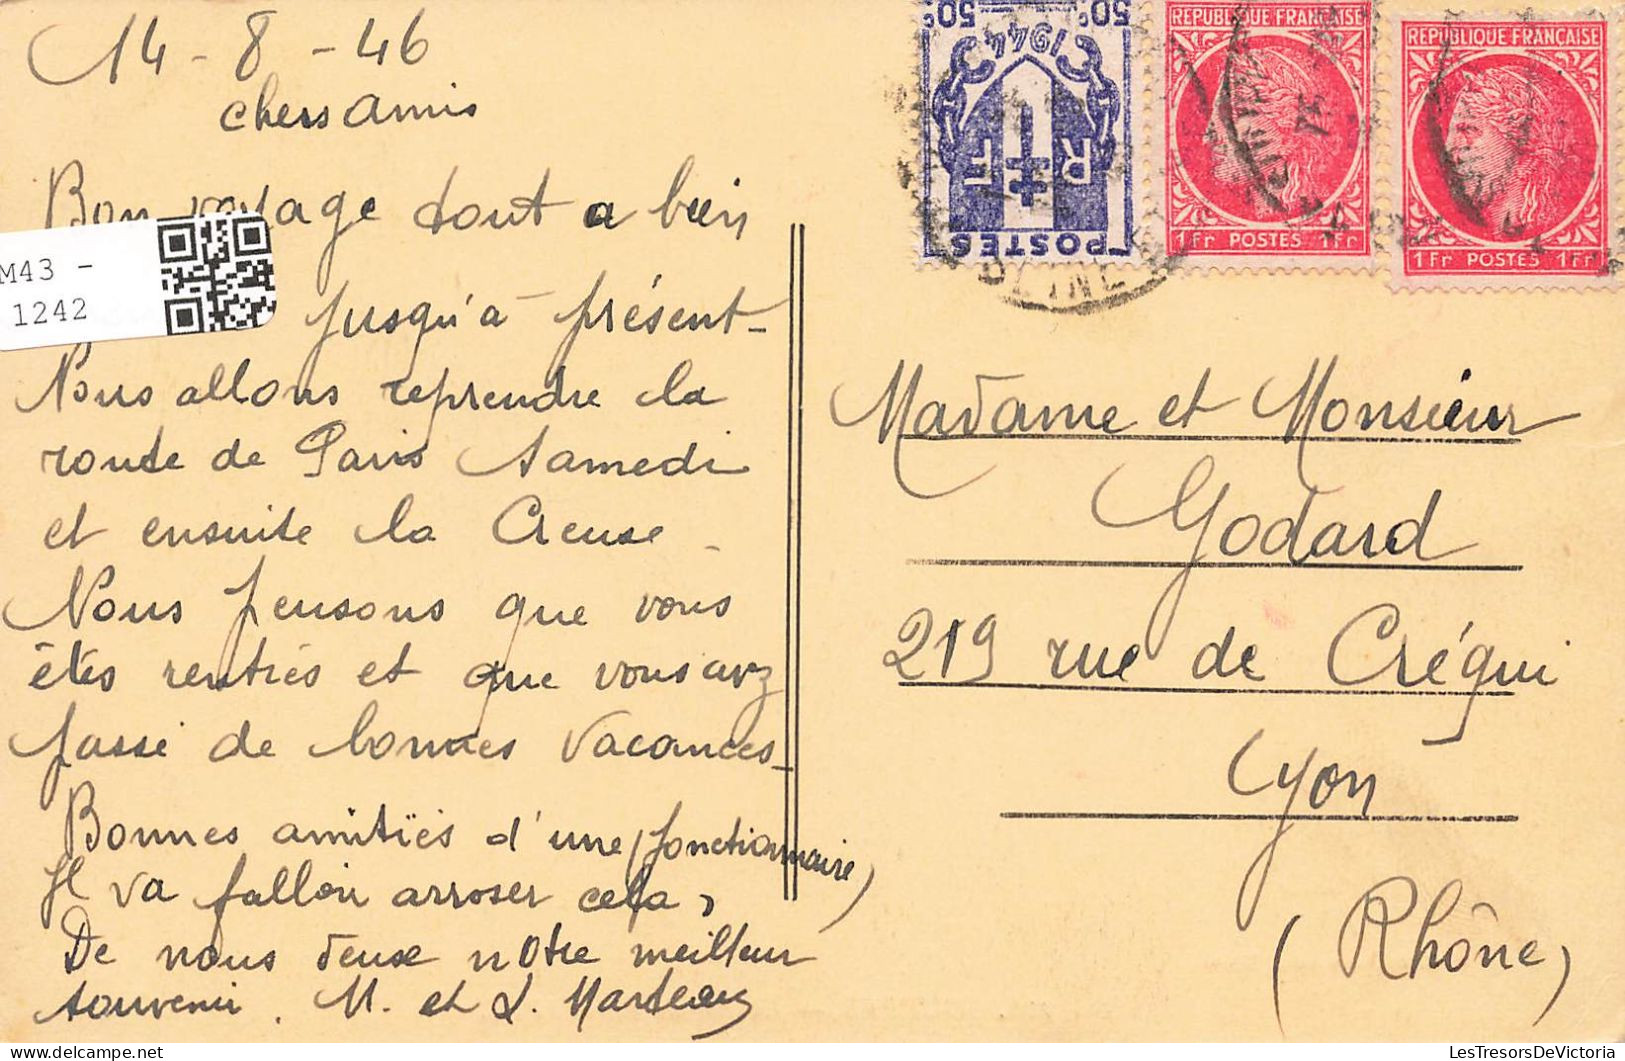 14 - 8 - 46
chers amis
Bon voyage tout a bien
jusqu'à présent -
Nous allons reprendre la
route de Paris Samedi
et ensuite la Creuse -
Nous pensons que vous
êtes rentrés et que vous avz
passé de bonnes vacances -
Bonnes amitiés d'une (fonctionnaire)
Il va falloir arroser cela,
De nous deux notre meilleur
souvenir. M. et L. Marteau
M43 -
1242
50c 50c
1944
RF
POSTES
REPUBLIQUE FRANÇAISE
1Fr POSTES 1Fr
REPUBLIQUE FRANÇAISE
1Fr POSTES 1Fr
Madame et Monsieur
Godard
219 rue de Créqui
Lyon
(Rhône)
LesTresorsDeVictoria.com